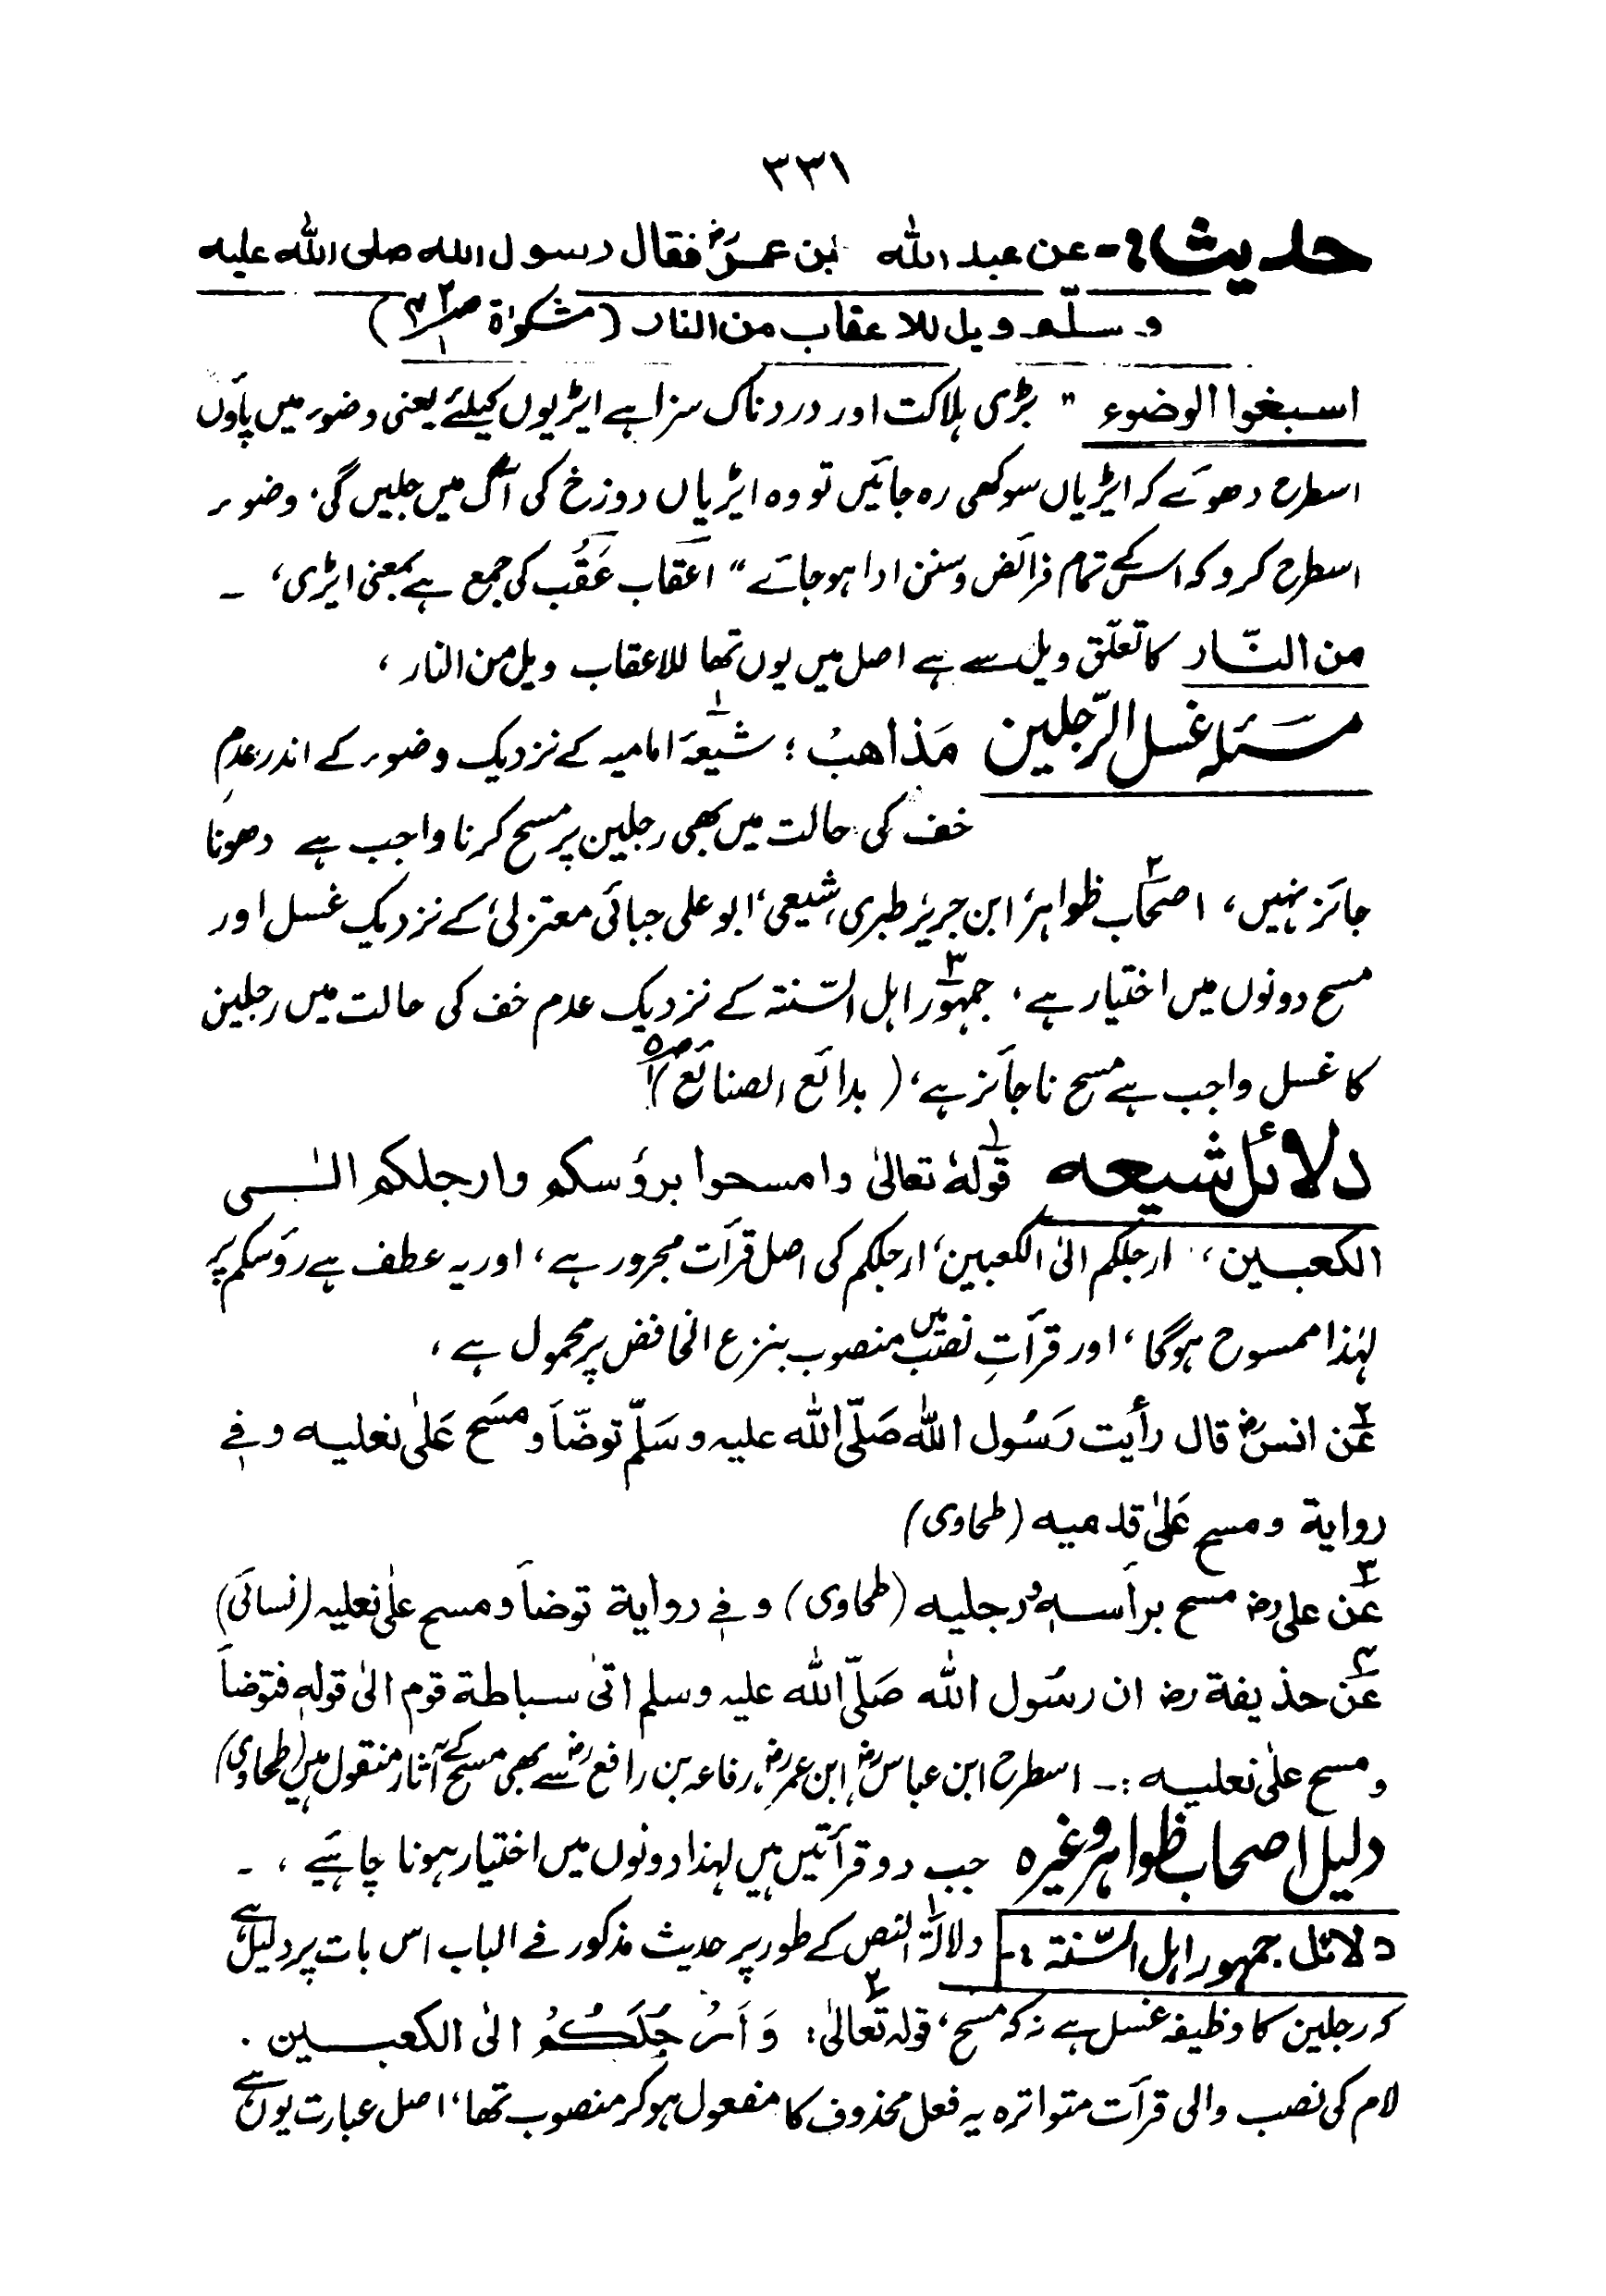 ۳۳۱
حدیث :- عن عبد الله بن عمرؓ فقال رسول الله صلی الله علیه
وسلّم ویل للاعقاب من النار (مشکوٰۃ ص۴۶/۱)
اسبغوا الوضوء " بڑی ہلاکت اور دردناک سزا ہے ایڑیوں کیلئے یعنی وضوء میں پاؤں
اسطرح دھوئے کہ ایڑیاں سوکھی رہ جائیں تو وہ ایڑیاں دوزخ کی آگ میں جلیں گی، وضوء
اسطرح کرو کہ اسکے تمام فرائض وسنن ادا ہو جائے " اعقاب عَقُب کی جمع ہے بمعنی ایڑی، ۔
من النّار کا تعلّق ویل سے ہے اصل میں یوں تھا للاعقاب ویل من النار ،
مسئلہ غسل الرّجلین مَذاھبُ ؛ ۱ شیعۂ امامیہ کے نزدیک وضوء کے اندر عدمِ
خف کی حالت میں بھی رجلین پر مسح کرنا واجب ہے دھونا
جائز نہیں، ۲ اصحاب ظواہر، ابن جریر طبری شیعی، ابو علی جبائی معتزلی کے نزدیک غسل اور
مسح دونوں میں اختیار ہے، ۳ جمہور اہل السّنتہ کے نزدیک عدم خف کی حالت میں رجلین
کا غسل واجب ہے مسح ناجائز ہے، (بدائع الصنائع ص۵/۱)
دلائل شیعہ ۱ قولہٗ تعالیٰ وامسحوا برؤسکم وارجلکم الٰی
الکعبین، ارجلکم الیٰ الکعبین، ارجلکم کی اصل قرأت مجرور ہے، اور یہ عطف ہے رؤسکم پر
لہٰذا ممسوح ہوگا، اور قرأتِ نصب میں منصوب بنزع الخافض پر محمول ہے،
۲ عن انسؓ قال رأیت رَسُول اللّٰه صَلّی اللّٰه علیہ وسَلّم توضّأ ومَسَح عَلٰی نعلیہ وفی
روایة ومسح عَلیٰ قدمیه (طحاوی)
۳ عن علی رضؓ مسح برأسه ورجلیه (طحاوی) وفی روایة توضأ ومسح علیٰ نعلیہ (نسائی)
۴ عن حذیفة رضؓ ان رسُول اللّٰه صَلّی اللّٰه علیہ وسلم اتیٰ سباطة قوم الیٰ قولہٖ فتوضأ
ومسح علیٰ نعلیہ :۔ اسطرح ابن عباسؓ، ابن عمرؓ، رفاعہ بن رافعؓ سے بھی مسح کے آثار منقول ہیں (طحاوی)
دلیل اصحاب ظواہر وغیرہ جب دو قرأتیں ہیں لہذا دونوں میں اختیار ہونا چاہئیے ، ۔
دلائل جمہور اہل السّنتہ :- ۱ دلالۃ النص کے طور پر حدیث مذکور فے الباب اس بات پر دلیل ہے
کہ رجلین کا وظیفہ غسل ہے نہ کہ مسح، ۲ قولہ تعالیٰ: وَاَرْجُلَکُمْ الیٰ الکعبین .
لام کی نصب والی قرأت متواترہ یہ فعل محذوف کا مفعول ہو کر منصوب تھا، اصل عبارت یوں ہے